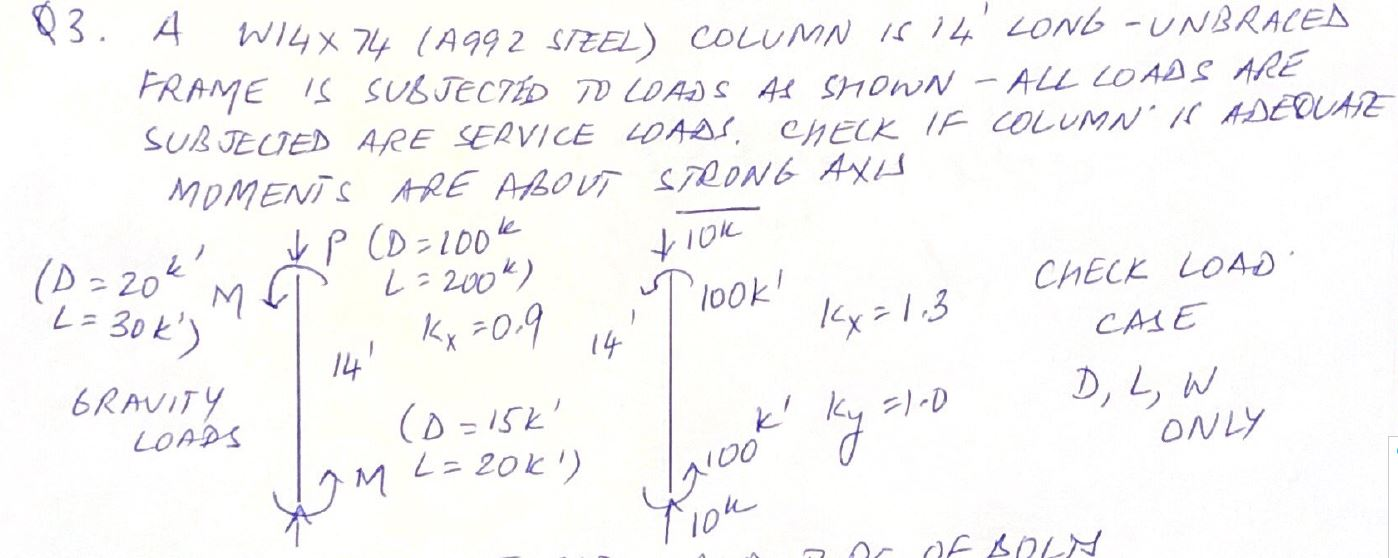 Q3. A W14X74 (A992 STEEL) COLUMN IS 14' LONG - UNBRACED
FRAME IS SUBJECTED TO LOADS AS SHOWN - ALL LOADS ARE
SUBJECTED ARE SERVICE LOADS. CHECK IF COLUMN IS ADEQUATE
MOMENTS ARE ABOUT STRONG AXIS
(D=20k'
L=30k')
M
P (D=100k
L=200k)
kx=0.9
14'
GRAVITY
LOADS
(D=15k'
L=20k')
M
10k
100k'
14'
kx=1.3
ky=1.0
100k'
10k
CHECK LOAD
CASE
D, L, W
ONLY
OF BOLTS